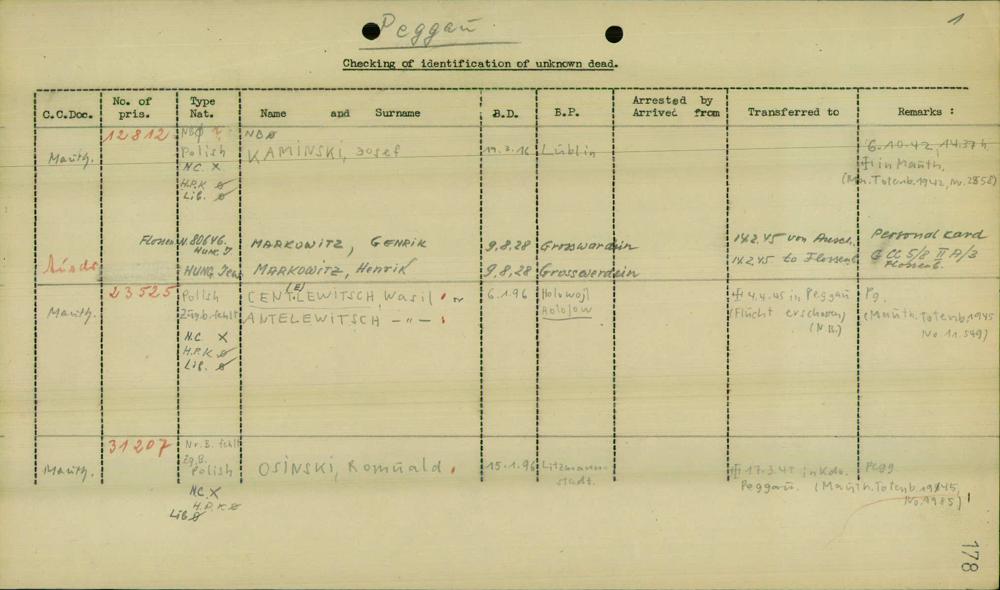 Peggaū
1
Checking of identification of unknown dead.
C.C.Doc. No. of pris. Type Nat. Name and Surname B.D. B.P. Arrested by Arrived from Transferred to Remarks :
12812 NBø NBø
Maūth. Polish KAMINSKI, Josef 19.3.16 Lūblin 6.10.42, 14.37 h
N.C. X ╬ in Maūth.
H.P.K ø (Mn. Totenb. 1942, nr. 2858)
Lib. ø
Flossen N. 80646. MARKOWITZ, GENRIK 9.8.28 Grosswardein 14.2.45 von Ausch. Personal card
HUNG Jew MARKOWITZ, Henrik 9.8.28 Grosswerdein 14.2.45 to Flossenb. G CC 5/8 II A/3
Flossenb.
23525 Polish CENTLEWITSCH, Wasil or 6.1.96 Holowojl ╬ 4.4.45 in Peggaū Pg.
(E)
Maūth. Zūg.b. fehlt ANTELEWITSCH —"— Holojow (Flūcht erschossen) (Maūth. Totenb. 1945
N.C. X (N.B.) No. 11.549)
H.P.K ø
Lib. ø
31207 Nr.B. fehlt
Zg.B.
Maūth. Polish OSINSKI, Romūald. 15.1.96 Litzmann- ╬ 17.3.45 in Kdo. Pegg
stadt. Peggaū. (Maūth. Totenb. 1945,
N.C. X No. 9985)
H.P.K ø
Lib ø
178